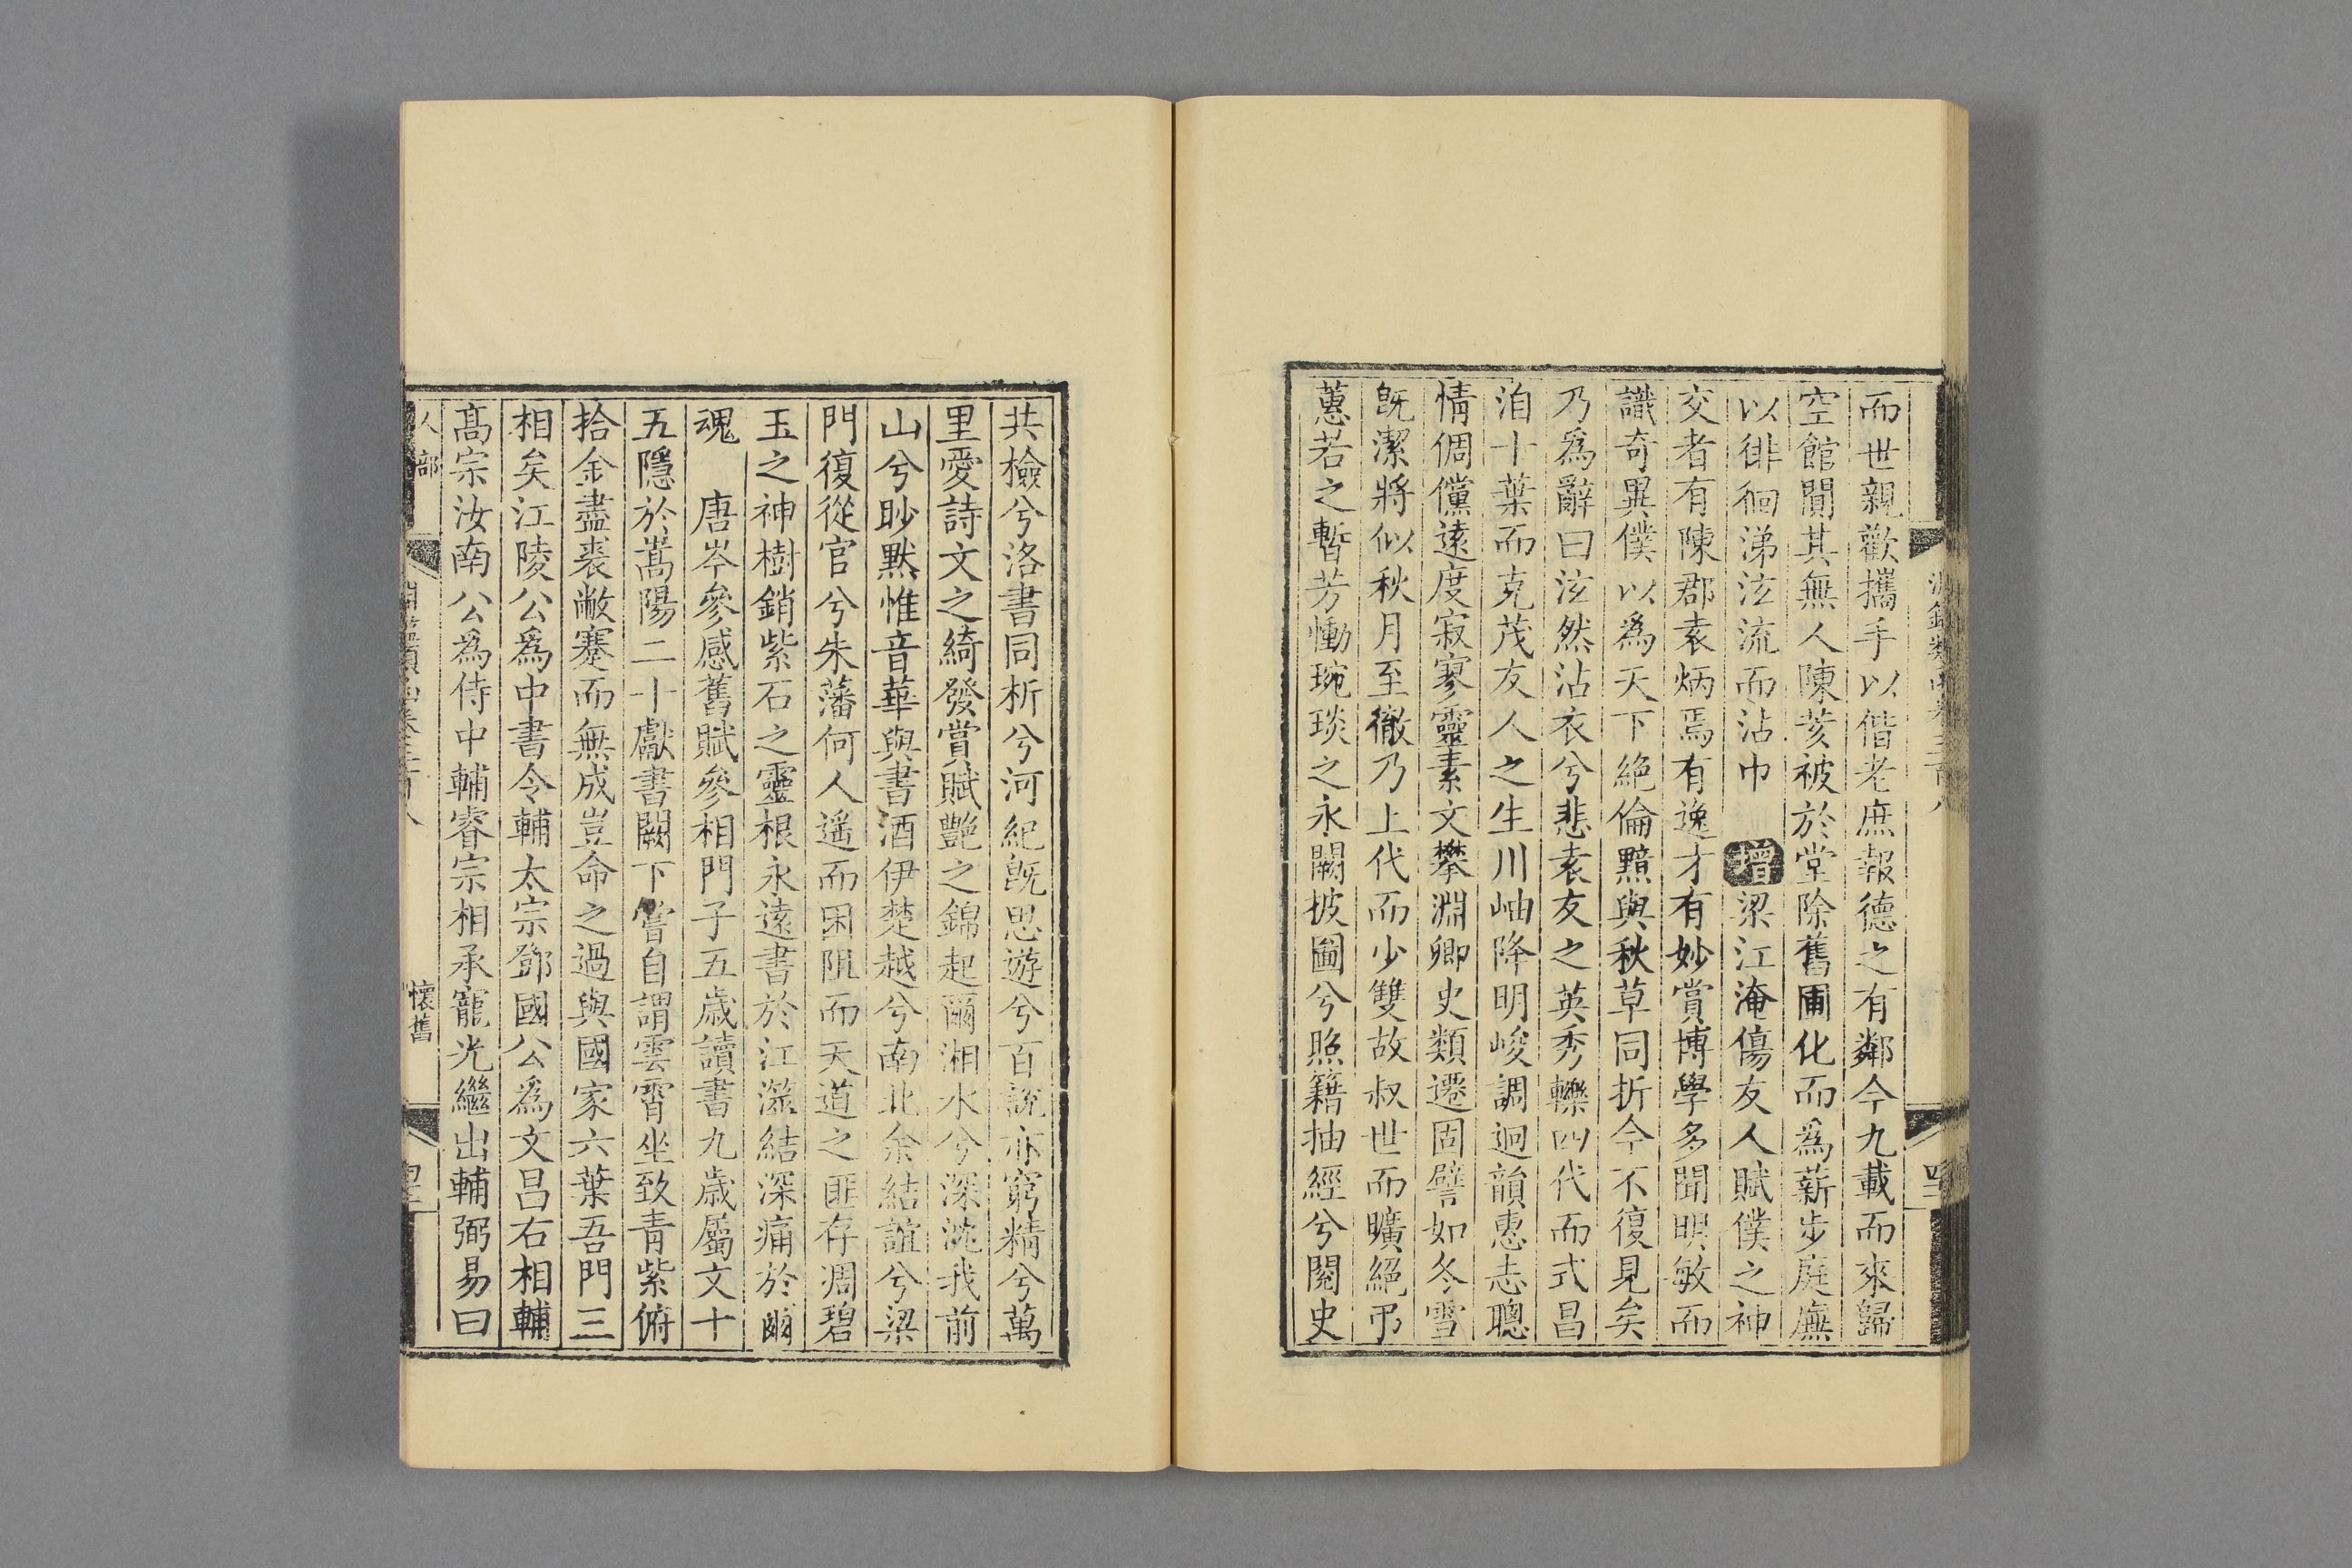 而世親歡攜手以偕老庶報德之有鄰今九載而來歸
空館閴其無人陳荄被於堂除舊圃化而為薪步庭廡
以徘徊涕泫流而沾巾 增梁江淹傷友人賦僕之神
交者有陳郡袁炳焉有逸才有妙賞博學多聞明敏而
識奇異僕以為天下絕倫黯與秋草同折今不復見矣
乃為辭曰泫然沾衣兮悲袁友之英秀轢四代而式昌
洎十葉而克茂友人之生川岫降明峻調迥韻惠志聰
情倜儻遠度寂寥靈素文攀淵卿史類遷固譬如冬雪
既潔將似秋月至徹乃上代而少雙故叔世而曠絕弔
蕙若之暫芳慟琬琰之永闕披圖兮照籍抽經兮閱史
共檢兮洛書同析兮河紀既思遊兮百說亦窮精兮萬
里愛詩文之綺發賞賦艷之錦起爾湘水兮深沈我前
山兮眇默惟音華與書酒伊楚越兮南北余結誼兮梁
門復從官兮朱藩何人遙而困阻而天道之匪存凋碧
玉之神樹銷紫石之靈根永遠書於江澨結深痛於爾
魂 唐岑參感舊賦參相門子五歲讀書九歲屬文十
五隱於嵩陽二十獻書闕下嘗自謂雲霄坐致青紫俯
拾金盡裘敝蹇而無成豈命之過與國家六葉吾門三
相矣江陵公為中書令輔太宗鄧國公為文昌右相輔
高宗汝南公為侍中輔睿宗相承寵光繼出輔弼易曰
人部
懷舊